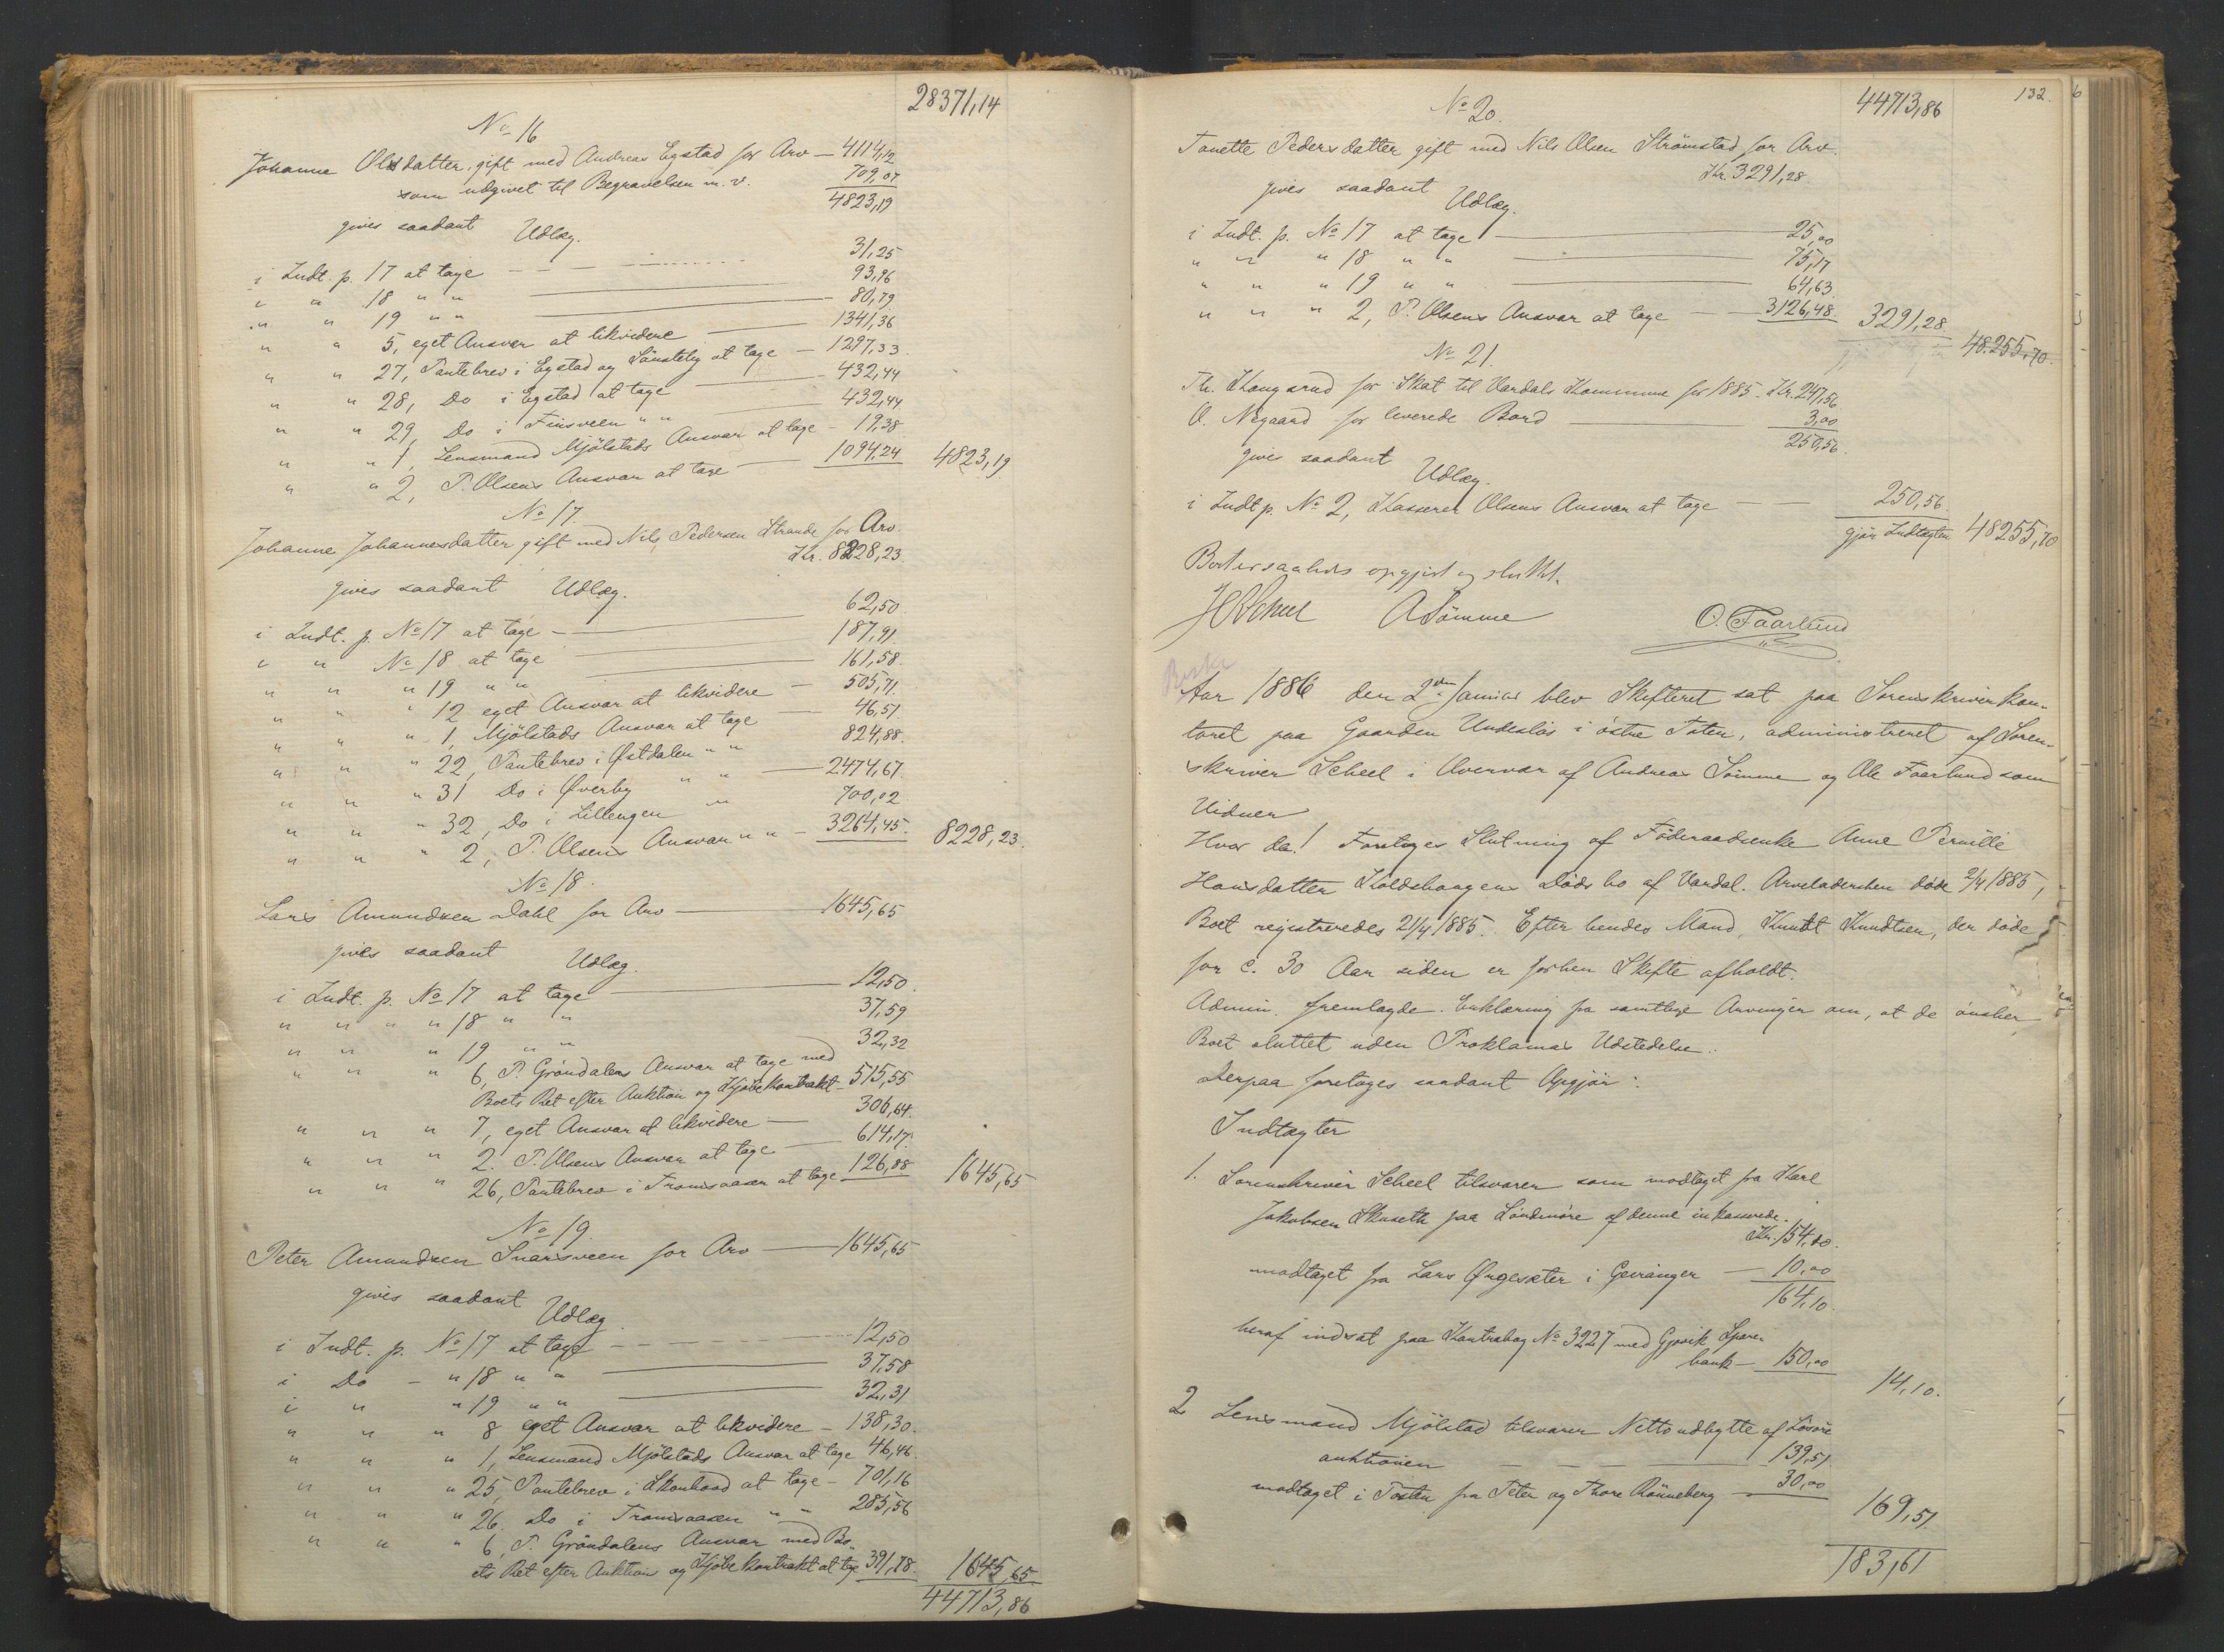 28371,14
No 16
Johanne Olsdatter, gift med Andreas Egstad for Arv — 4114,12
som udgivet til Begravelsen m. v. 709,07
4823,19
gives saadant Udlæg.
i Indt. p. 17 at tage — 31,25
" " 18 " " — 93,96
" " 19 " " — 80,79
" " 5, eget Ansvar at likvidere — 1341,36
" " 27, Pantebrev i Egstad og at tage — 1297,33
" " 28, Do i Egstad at tage — 432,44
" " 29, Do i Finsveen " " 432,44
" " 1, Lensmand Mjölstads Ansvar at tage — 19,38
" " 2, P. Olsens Ansvar at tage — 1094,24 4823,19
No 17.
Johanne Johannesdatter gift med Nils Pedersen Strande for Arv
Kr. 8228,23
gives saadant Udlæg.
i Indt. p. No 17 at tage — 62,50
" " No 18 at tage — 187,91
" " " 19 " " — 161,58
" " " 12 eget Ansvar at likvidere — 505,71
" " " 1, Mjölstads Ansvar at tage — 46,51
" " " 22, Pantebrev i Østdalen " " 824,88
" " " 31 Do i Øverby " " — 2474,67
" " " 32, Do i Lillengen " 700,02
" " " 2, P. Olsens Ansvar " " — 3264,45 8228,23
No 18.
Lars Amundsen Dahl for Arv — 1645,65
gives saadant Udlæg.
i Indt. p. No 17 at tage — 12,50
" " " " 18 " " 37,59
" " " 19 " " 32,32
" " " 6, P. Gröndalens Ansvar at tage med
Boets Ret efter Auktion og Kjöbekontrakt — 515,55
" " " 7, eget Ansvar at likvidere — 306,64
" " " 2. P. Olsens Ansvar at tage — 614,17
" " " 26, Pantebrev i Tromsaasen at tage 126,88 1645,65
No 19.
Peter Amundsen Snarsveen for Arv — 1645,65
gives saadant Udlæg
i Indt. p. No 17 at tage — 12,50
i Do — " 18 " " — 37,58
i " " 19 " " — 32,31
" " " 8 eget Ansvar at likvidere — 138,30
" " " 1, Lensmand Mjölstads Ansvar at tage 46,46
" " " 25, Pantebrev i at tage — 701,16
" " " 26. Do i Tromsaasen " " 285,56
" " " 6, P. Gröndalens Ansvar med Bo-
ets Ret efter Auktion og Kjöbekontrakt at tage 391,78 1645,65
44713,86
44713,86 132.
No 20.
Tonette Pedersdatter gift med Nils Olsen Strömstad for Arv.
Kr. 3291,28
gives saadant Udlæg.
i Indt. p. No 17 at tage — 25,00
" " " 18 " " — 75,17
" " " 19 " " — 64,63
" " " 2, P. Olsens Ansvar at tage — 3126,48 3291,28
48.255,70
No 21.
Th. Haugsrud for Skat til Vardals Kommune for 1885. Kr. 247,56
O. Nygaard for leverede Bord — 3,00
250,56
gives saadant Udlæg.
i Indt p. No 2, Kasserer Olsens Ansvar at tage — 250,56
gjör Indtægten 48255,70
Boet saaledes opgjort og sluttet.
HRScheel ASömme O. Faarlund
Aar 1886 den 2den Januar blev Skifteret sat paa Sorenskriverkon-
toret paa Gaarden Undeslös i östre Toten, administreret af Soren-
skriver Scheel i Overvær af Andreas Sömme og Ole Faarlund som
Vidner
Hvor da! Foretoges Slutning af Föderaadsenke Anne Pernille
Hansdatter Koldshaugens Dödsbo af Vardal. Arveladersken döde 2/4 1885,
Boet registreredes 21/4 1885. Efter hendes Mand, Knudt Knudtsen, der döde
for c. 30 Aar siden er forhen Skifte afholdt.
Admin. fremlagde Erklæring fra samtlige Arvinger om, at de önsker
Boet sluttet uden Proklamas Udstedelse.
Derpaa foretoges saadant Opgjör:
Indtægter
1. Sorenskriver Scheel tilsvarer som modtaget fra Karl
Jakobsen Skuseth paa Söndmöre af denne inkasserede
Kr. 154,10
modtaget fra Lars Ørgesæter i Geiranger — 10,00
164,10
heraf indsat paa Kontrabog No 3227 med Gjövik Spare-
bank — 150,00
14,10.
2 Lensmand Mjölstad tilsvarer Nettoudbytte af Lösöre
auktionen — 139,51
modtaget i fra Peter og Thore Rönneberg — 30,00
169,51
183,61